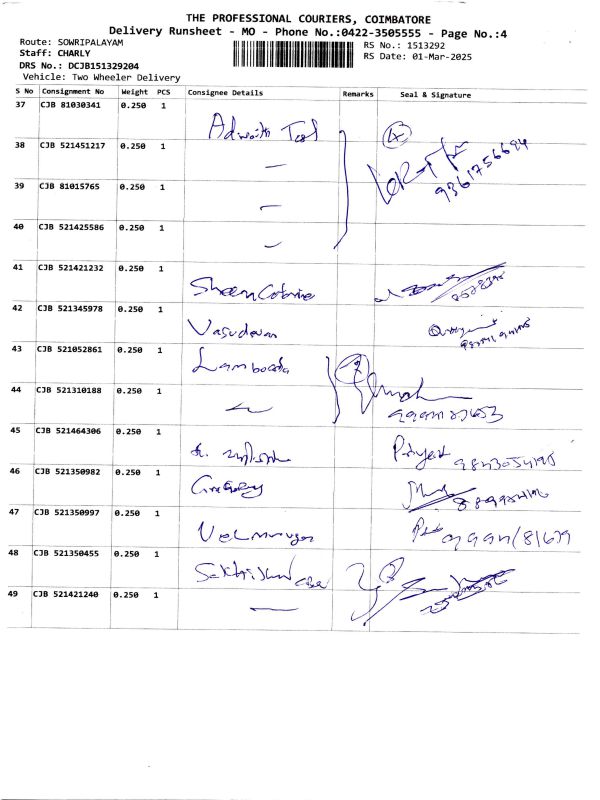 THE PROFESSIONAL COURIERS, COIMBATORE
Delivery Runsheet - MO - Phone No.:0422-3505555 - Page No.:4
Route: SOWRIPALAYAM
RS No.: 1513292
Staff: CHARLY
RS Date: 01-Mar-2025
DRS No.: DCJB151329204
Vehicle: Two Wheeler Delivery
S No Consignment No Weight PCS Consignee Details Remarks Seal & Signature
37 CJB 81030341 0.250 1
4
38 CJB 521451217 0.250 1 —
9361756694
39 CJB 81015765 0.250 1 —
40 CJB 521425586 0.250 1 —
41 CJB 521421232 0.250 1 Sheen
42 CJB 521345978 0.250 1 Vasudevan
43 CJB 521052861 0.250 1 Lambooda
2
44 CJB 521310188 0.250 1 —
45 CJB 521464306 0.250 1
46 CJB 521350982 0.250 1 Gregory
47 CJB 521350997 0.250 1 Velmurugan
48 CJB 521350455 0.250 1
49 CJB 521421240 0.250 1 —